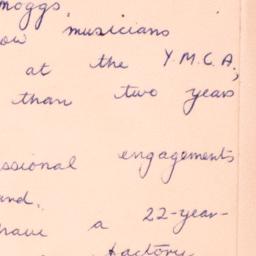 moggs,
ow musicians
at the Y.M.C.A,
than two years
ssional engagements
and.
have a 22-year-
factory